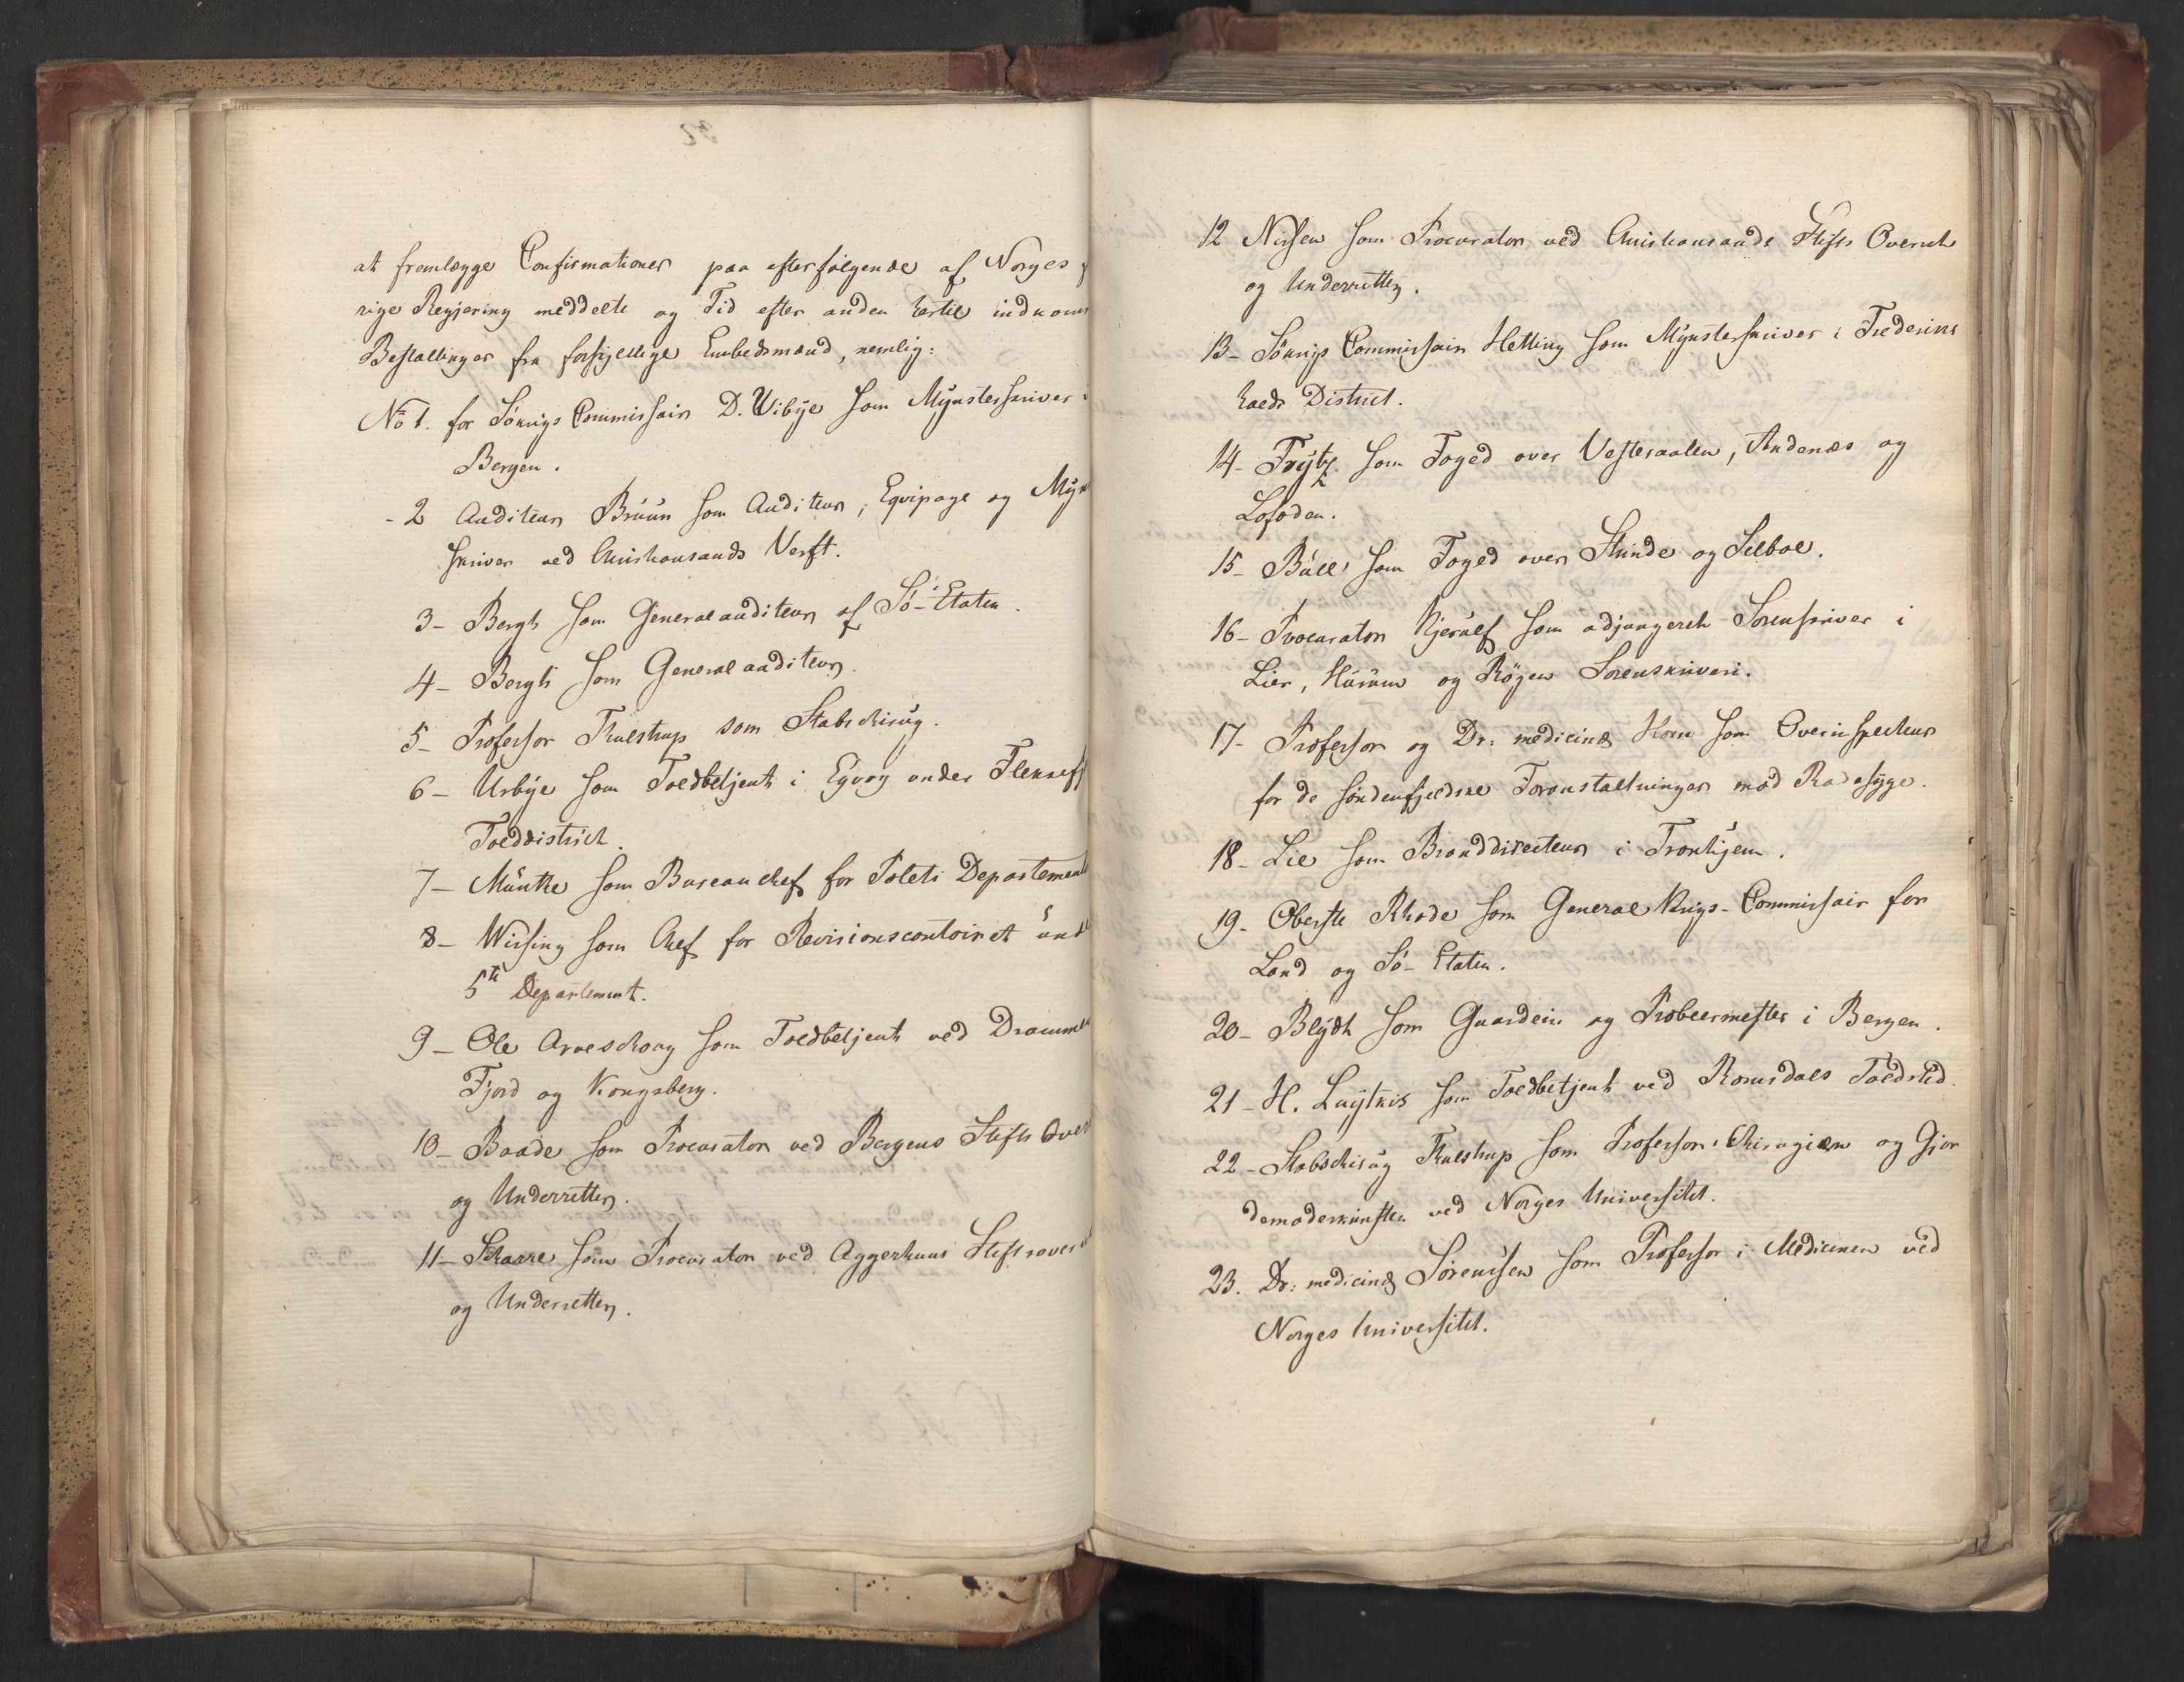 at fremlægge Confirmationer paa efterfølgende af Norges
rige Regjering meddelte og Tid efter anden hertil indkomm
Bestallinger for forskjellige Embedsmænd, nemlig:
No 1. for Sökrigs Commissair D. Wibye som Mynsterskriver i
Bergen.
- 2 Auditeur Bruun som Auditeur, Eqvipage og Myn
skriver ved Christiansands Verft.
3 - Bergh som Generalauditeur af Sö-Etaten.
4 - Bergh som Generalauditeur.
5 - Professor Thulstrup som Stabschirurg.
6 - Urbye som Toldbetjent i Egvog under Flekkefj
Tolddistrict.
7 - Münthe som Bureauchef for Politi Departement
8 - Wissing som Chef for Revisionscontoiret und
5te Departement.
9 - Ole Arveschoug som Toldbetjent ved Dramme
Fjord og Kongsberg.
10 - Baade som Procurator ved Bergens Stifts Over
og Underretter.
11 - Scharre som Procurator ved Aggerhuus Stiftsover
og Underretter.
12 Nissen som Procurator ved Christiansands Stifts Overret
og Underretter.
13 - Sökrigs Commissair Hetting som Mynsterskriver i Frederiks
halds District.
14 - Frytz som Foged over Vesteraalen, Andenæs og
Lofoden.
15 - Bull som Foged over Strinde og Selboe.
16 - Procurator Kjerulf som adjungeret Sorenskriver i
Lier, Hurum og Röyen Sorenskriveri.
17 - Professor og Dr: medicinæ Horn som Overinspecteur
for de søndenfjeldske Foranstaltninger mod Radesyge.
18 - Lie som Branddirecteur i Tronhjem.
19 - Oberste Rhode som General Krigs-Commissair for
Land og Sö-Etaten.
20 - Blydt som Guardein og Probeermester i Bergen.
21 - H. Luytkis som Toldbetjent ved Romsdals Toldsted.
22 - Stabschirurg Thulstrup som Professor i Chirurgien og Gjor
demoderkunsten ved Norges Universitet.
23. Dr: medicinæ Sörensen som Professor i Medicinen ved
Norges Universitet.